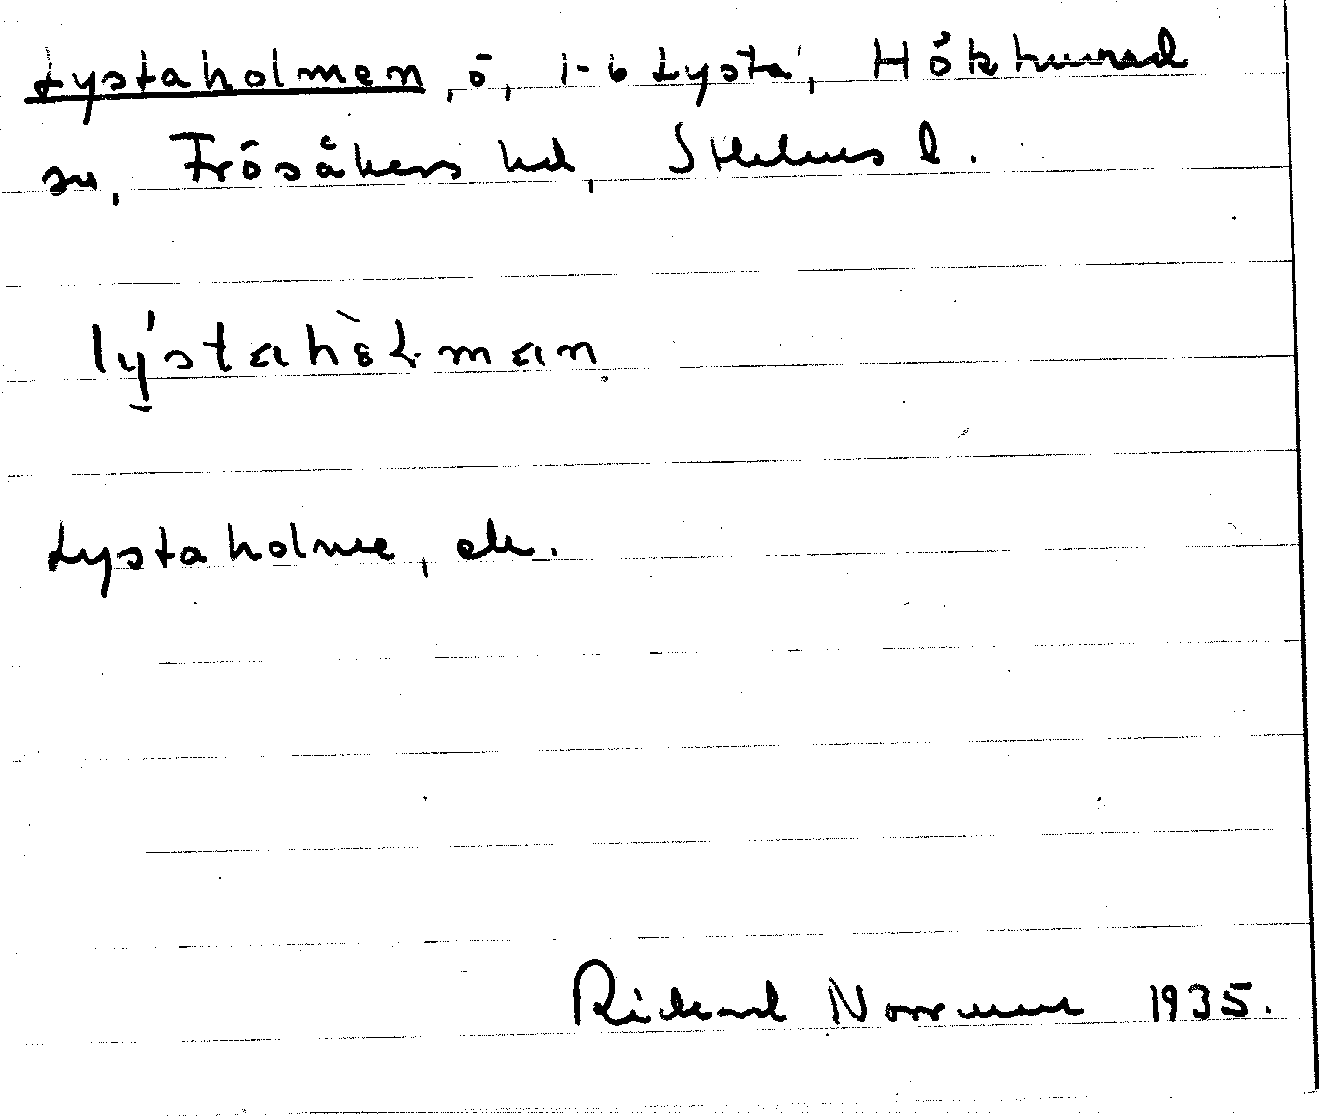 Lystaholmen, ö, 1-6 Lysta, Hökhuvud
sn, Frösåkers hd, Sthlms l.
lýstahòlman
Lystaholme, ek.
Rickard Norrman 1935.